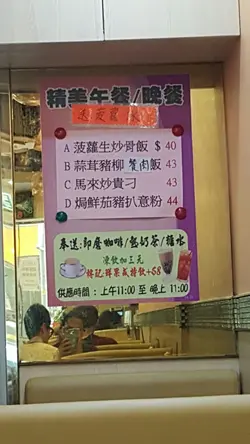 精美午餐/晚餐
A 菠蘿生炒骨飯 $ 40
B 蒜茸豬柳 飯 43
C 馬來炒貴刁 43
D 焗鮮茄豬扒意粉 44
奉送:即磨咖啡/熱奶茶/
凍飲加三元
供應時間:上午11:00 至 晚上 11:00